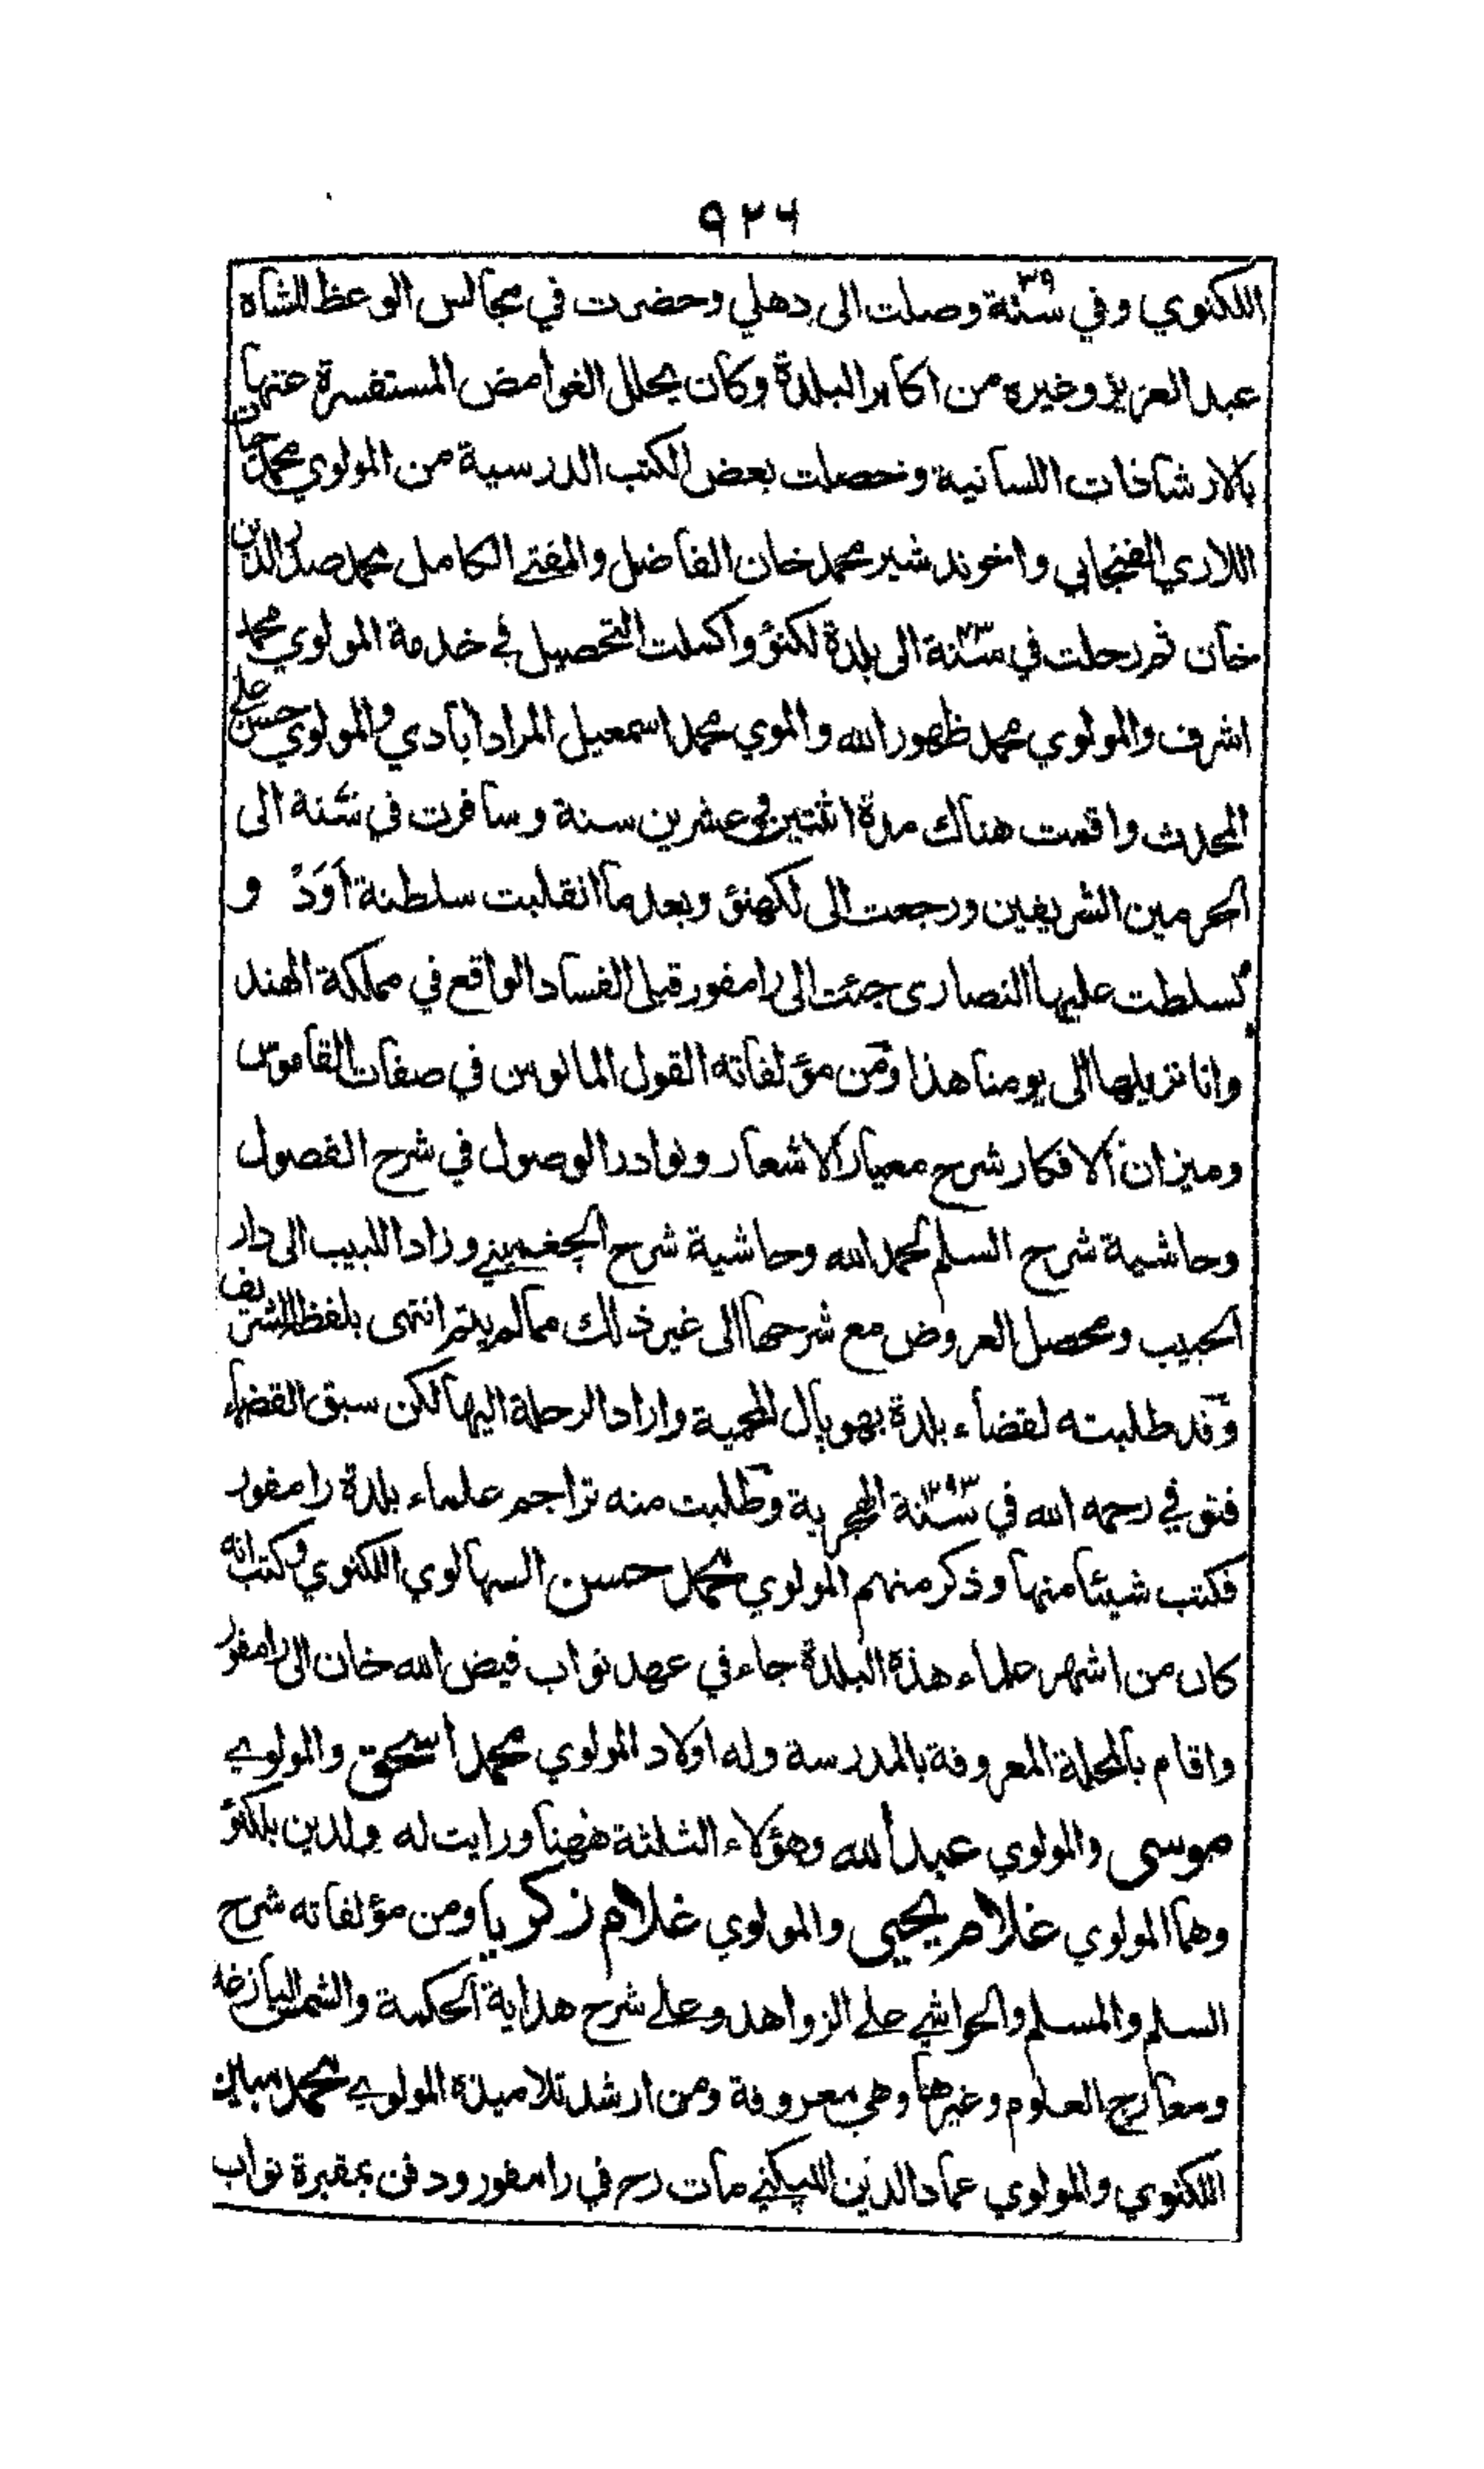 ٩٢٦
اللكنوي وفي ٣٩ سنة وصلت الى دهلي وحضرت في مجالس الوعظ للشاه
عبد العزيز وغيره من اكابر البلدة وكان يحلل الغوامض المستفسرة عنها
بالارشادات اللسانية وحصلت بعض الكتب الدرسية من المولوي محمد حيات
اللاري الفنجابي واخوند شير محمد خان الفاضل والمفتي الكامل محمد صدر الدين
خان ثم رحلت في سنة الى بلدة لكنؤ واكملت التحصيل في خدمة المولوي محمد
اشرف والمولوي محمد ظهور الله والموي محمد اسمعيل المرادابادي والمولوي حسن علي
المحدث واقمت هناك مدة اثنتين وعشرين سنة وسافرت في سنة الى
الحرمين الشريفين ورجعت الى لكهنؤ وبعد ما انقلبت سلطنة اَوَدْ و
تسلطت عليها النصارى جئت الى رامفور قبل الفساد الواقع في مملكة الهند
وانا نزيلها الى يومنا هذا ومن مؤلفاته القول المانوس في صفات القاموس
وميزان الافكار شرح معيار الاشعار ونوادر الوصول في شرح الفصول
وحاشية شرح السلم لحمد الله وحاشية شرح الچغميني وزاد اللبيب الى دار
الحبيب ومحصل العروض مع شرحها الى غير ذلك مما لم يتم انتهى بلفظه الشريف
وقد طلبته لقضاء بلدة بهوپال المحمية واراد الرحلة اليها لكن سبق القضاء
فتوفي رحمه الله في سنة الهجرية وطلبت منه تراجم علماء بلدة رامفور
فكتب شيئا منها وذكر منهم المولوي محمد حسن السهالوي اللكنوي وكتب انه
كان من اشهر علماء هذة البلدة جاء في عهد نواب فيض الله خان الى رامفور
واقام بالمحلة المعروفة بالمدرسة وله اولاد المولوي محمد اسحق والمولوي
موسى والمولوي عبد الله وهؤلاء الثلثة ههنا ورايت له ولدين بلكنؤ
وهما المولوي غلام يحيى والمولوي غلام زكريا ومن مؤلفاته شرح
السلم والمسلم والحواشي على الزواهد وعلى شرح هداية الحكمة والشمس البازغة
ومعارج العلوم وغيرها وهي معروفة ومن ارشد تلاميذه المولوي محمد مبين
اللكنوي والمولوي عماد الدين اللبكني مات رح في رامفور ودفن بمقبرة نواب